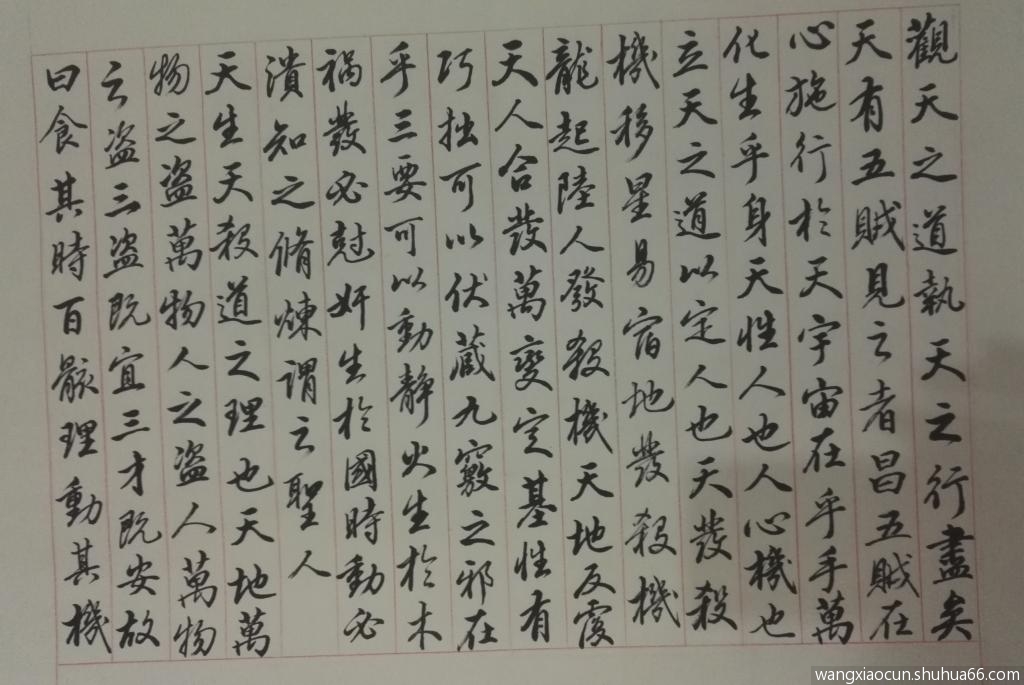 觀天之道執天之行盡矣
天有五賊見之者昌五賊在
心施行於天宇宙在乎手萬
化生乎身天性人也人心機也
立天之道以定人也天發殺
機移星易宿地發殺機
龍起陸人發殺機天地反覆
天人合發萬變定基性有
巧拙可以伏藏九竅之邪在
乎三要可以動靜火生於木
禍發必尅奸生於國時動必
潰知之脩煉謂之聖人
天生天殺道之理也天地萬
物之盜萬物人之盜人萬物
之盜三盜既宜三才既安故
曰食其時百骸理動其機
wangxiaocun.shuhua66.com